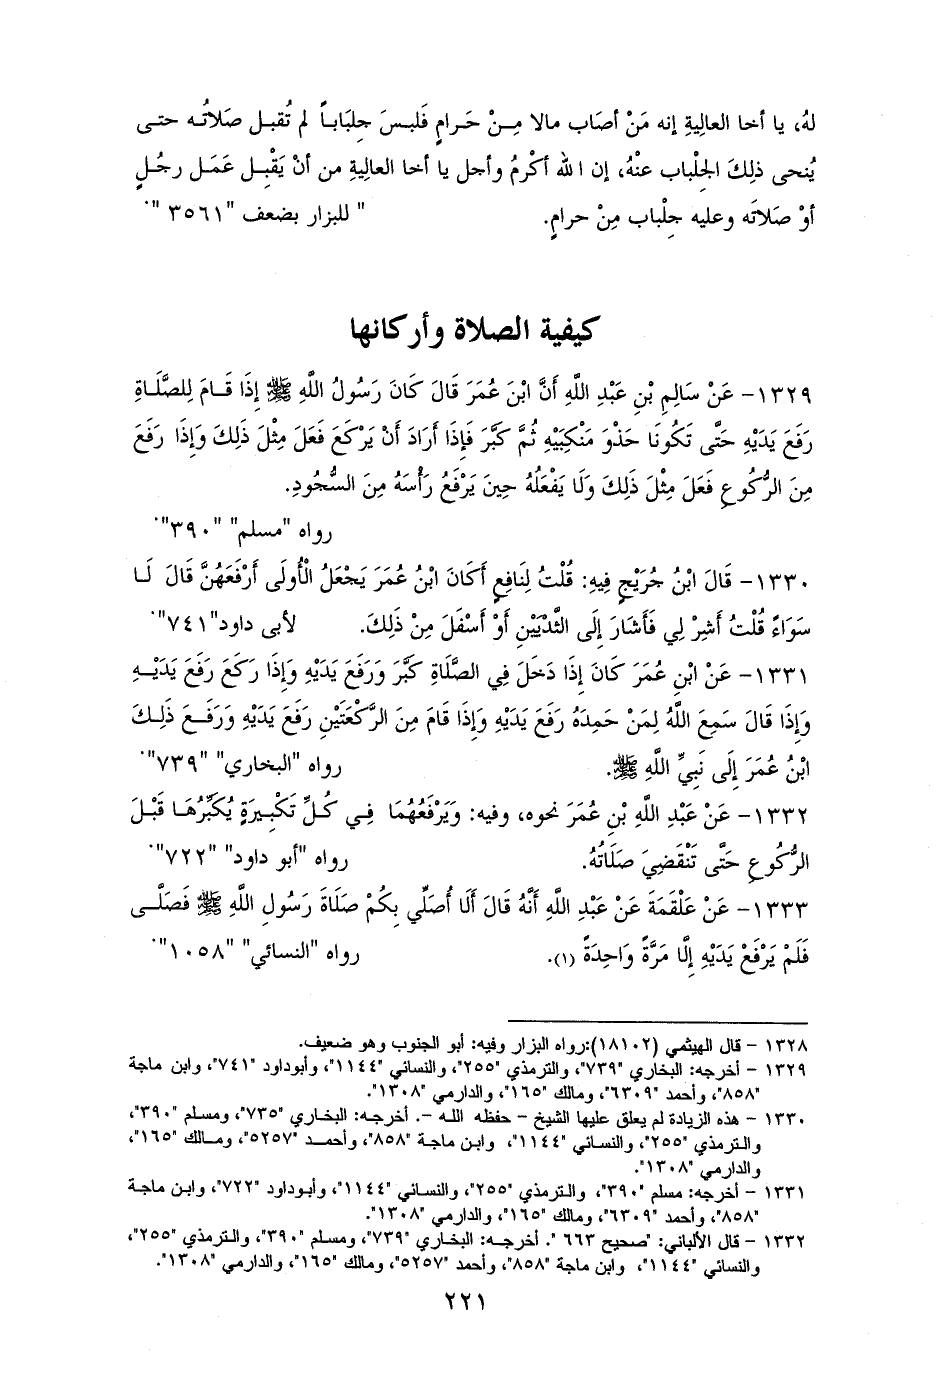 لهُ، يا أخا العالِيةِ إنه مَنْ أصَاب مالا مِـنْ حَـرامٍ فَلبـسَ جِلبَابـاً لم تُقبـل صَلاتُـه حتـى
يُنحى ذلِكَ الجِلْباب عنْهُ، إن الله أكْرمُ وأجل يا أخا العالِيةِ من أنْ يَقْبِـل عَمَـل رجُـلٍ
أوْ صَلاتَه وعليه جِلْباب مِنْ حرامٍ. " للبزار بضعف "٣٥٦١".
كيفية الصلاة وأركانها
١٣٢٩- عَنْ سَالِمِ بْنِ عَبْدِ اللَّهِ أَنَّ ابْنَ عُمَرَ قَالَ كَانَ رَسُولُ اللَّهِ ﷺ إِذَا قَـامَ لِلصَّلَـاةِ
رَفَعَ يَدَيْهِ حَتَّى تَكُونَا حَذْوَ مَنْكِبَيْهِ ثُمَّ كَبَّرَ فَإِذَا أَرَادَ أَنْ يَرْكَعَ فَعَلَ مِثْلَ ذَلِكَ وَإِذَا رَفَعَ
مِنَ الرُّكُوعِ فَعَلَ مِثْلَ ذَلِكَ وَلَا يَفْعَلُهُ حِينَ يَرْفَعُ رَأْسَهُ مِنَ السُّجُودِ.
رواه "مسلم" "٣٩٠".
١٣٣٠- قَالَ ابْنُ جُرَيْجٍ فِيهِ: قُلْتُ لِنَافِعٍ أَكَانَ ابْنُ عُمَرَ يَجْعَلُ الْأُولَى أَرْفَعَهُنَّ قَالَ لَـا
سَوَاءً قُلْتُ أَشِرْ لِي فَأَشَارَ إِلَى الثَّدْيَيْنِ أَوْ أَسْفَلَ مِنْ ذَلِكَ. لأبى داود"٧٤١".
١٣٣١- عَنْ ابْنِ عُمَرَ كَانَ إِذَا دَخَلَ فِي الصَّلَاةِ كَبَّرَ وَرَفَعَ يَدَيْهِ وَإِذَا رَكَعَ رَفَعَ يَدَيْـهِ
وَإِذَا قَالَ سَمِعَ اللَّهُ لِمَنْ حَمِدَهُ رَفَعَ يَدَيْهِ وَإِذَا قَامَ مِنَ الرَّكْعَتَيْنِ رَفَعَ يَدَيْهِ وَرَفَـعَ ذَلِـكَ
ابْنُ عُمَرَ إِلَى نَبِيِّ اللَّهِ ﷺ. رواه "البخاري" "٧٣٩".
١٣٣٢- عَنْ عَبْدِ اللَّهِ بْنِ عُمَرَ نحوه، وفيه: وَيَرْفَعُهُمَا فِـي كُـلِّ تَكْبِيرَةٍ يُكَبِّرُهَـا قَبْـلَ
الرُّكُوعِ حَتَّى تَنْقَضِيَ صَلَاتُهُ. رواه "أبو داود" "٧٢٢".
١٣٣٣- عَنْ عَلْقَمَةَ عَنْ عَبْدِ اللَّهِ أَنَّهُ قَالَ أَلَا أُصَلِّي بِكُمْ صَلَاةَ رَسُولِ اللَّهِ ﷺ فَصَلَّـى
فَلَمْ يَرْفَعْ يَدَيْهِ إِلَّا مَرَّةً وَاحِدَةً (١). رواه "النسائي" "١٠٥٨".
١٣٢٨ - قال الهيثمي (١٨١٠٢):رواه البزار وفيه: أبو الجنوب وهو ضعيف.
١٣٢٩ - أخرجه: البخاري "٧٣٩"، والترمذي "٢٥٥"، والنسائي "١١٤٤"، وأبوداود "٧٤١"، وابن ماجة
"٨٥٨"، وأحمد "٦٣٠٩"، ومالك "١٦٥"، والدارمي "١٣٠٨".
١٣٣٠ - هذه الزيادة لم يعلق عليها الشيخ - حفظه الله -. أخرجه: البخاري "٧٣٥"، ومسلم "٣٩٠"،
والترمذي "٢٥٥"، والنسائي "١١٤٤"، وابن ماجة "٨٥٨"، وأحمـد "٥٢٥٧"، ومـالك "١٦٥"،
والدارمي "١٣٠٨".
١٣٣١ - أخرجه: مسلم "٣٩٠"، والترمذي "٢٥٥"، والنسائي "١١٤٤"، وأبوداود "٧٢٢"، وابـن ماجة
"٨٥٨"، وأحمد "٦٣٠٩"، ومالك "١٦٥"، والدارمي "١٣٠٨".
١٣٣٢ - قال الألباني: "صحيح ٦٦٣ ". أخرجـه: البخاري "٧٣٩"، ومسلم "٣٩٠"، والترمذي "٢٥٥"،
والنسائي "١١٤٤"، وابن ماجة "٨٥٨"، وأحمد "٥٢٥٧"، ومالك "١٦٥"، والدارمي "١٣٠٨".
٢٢١